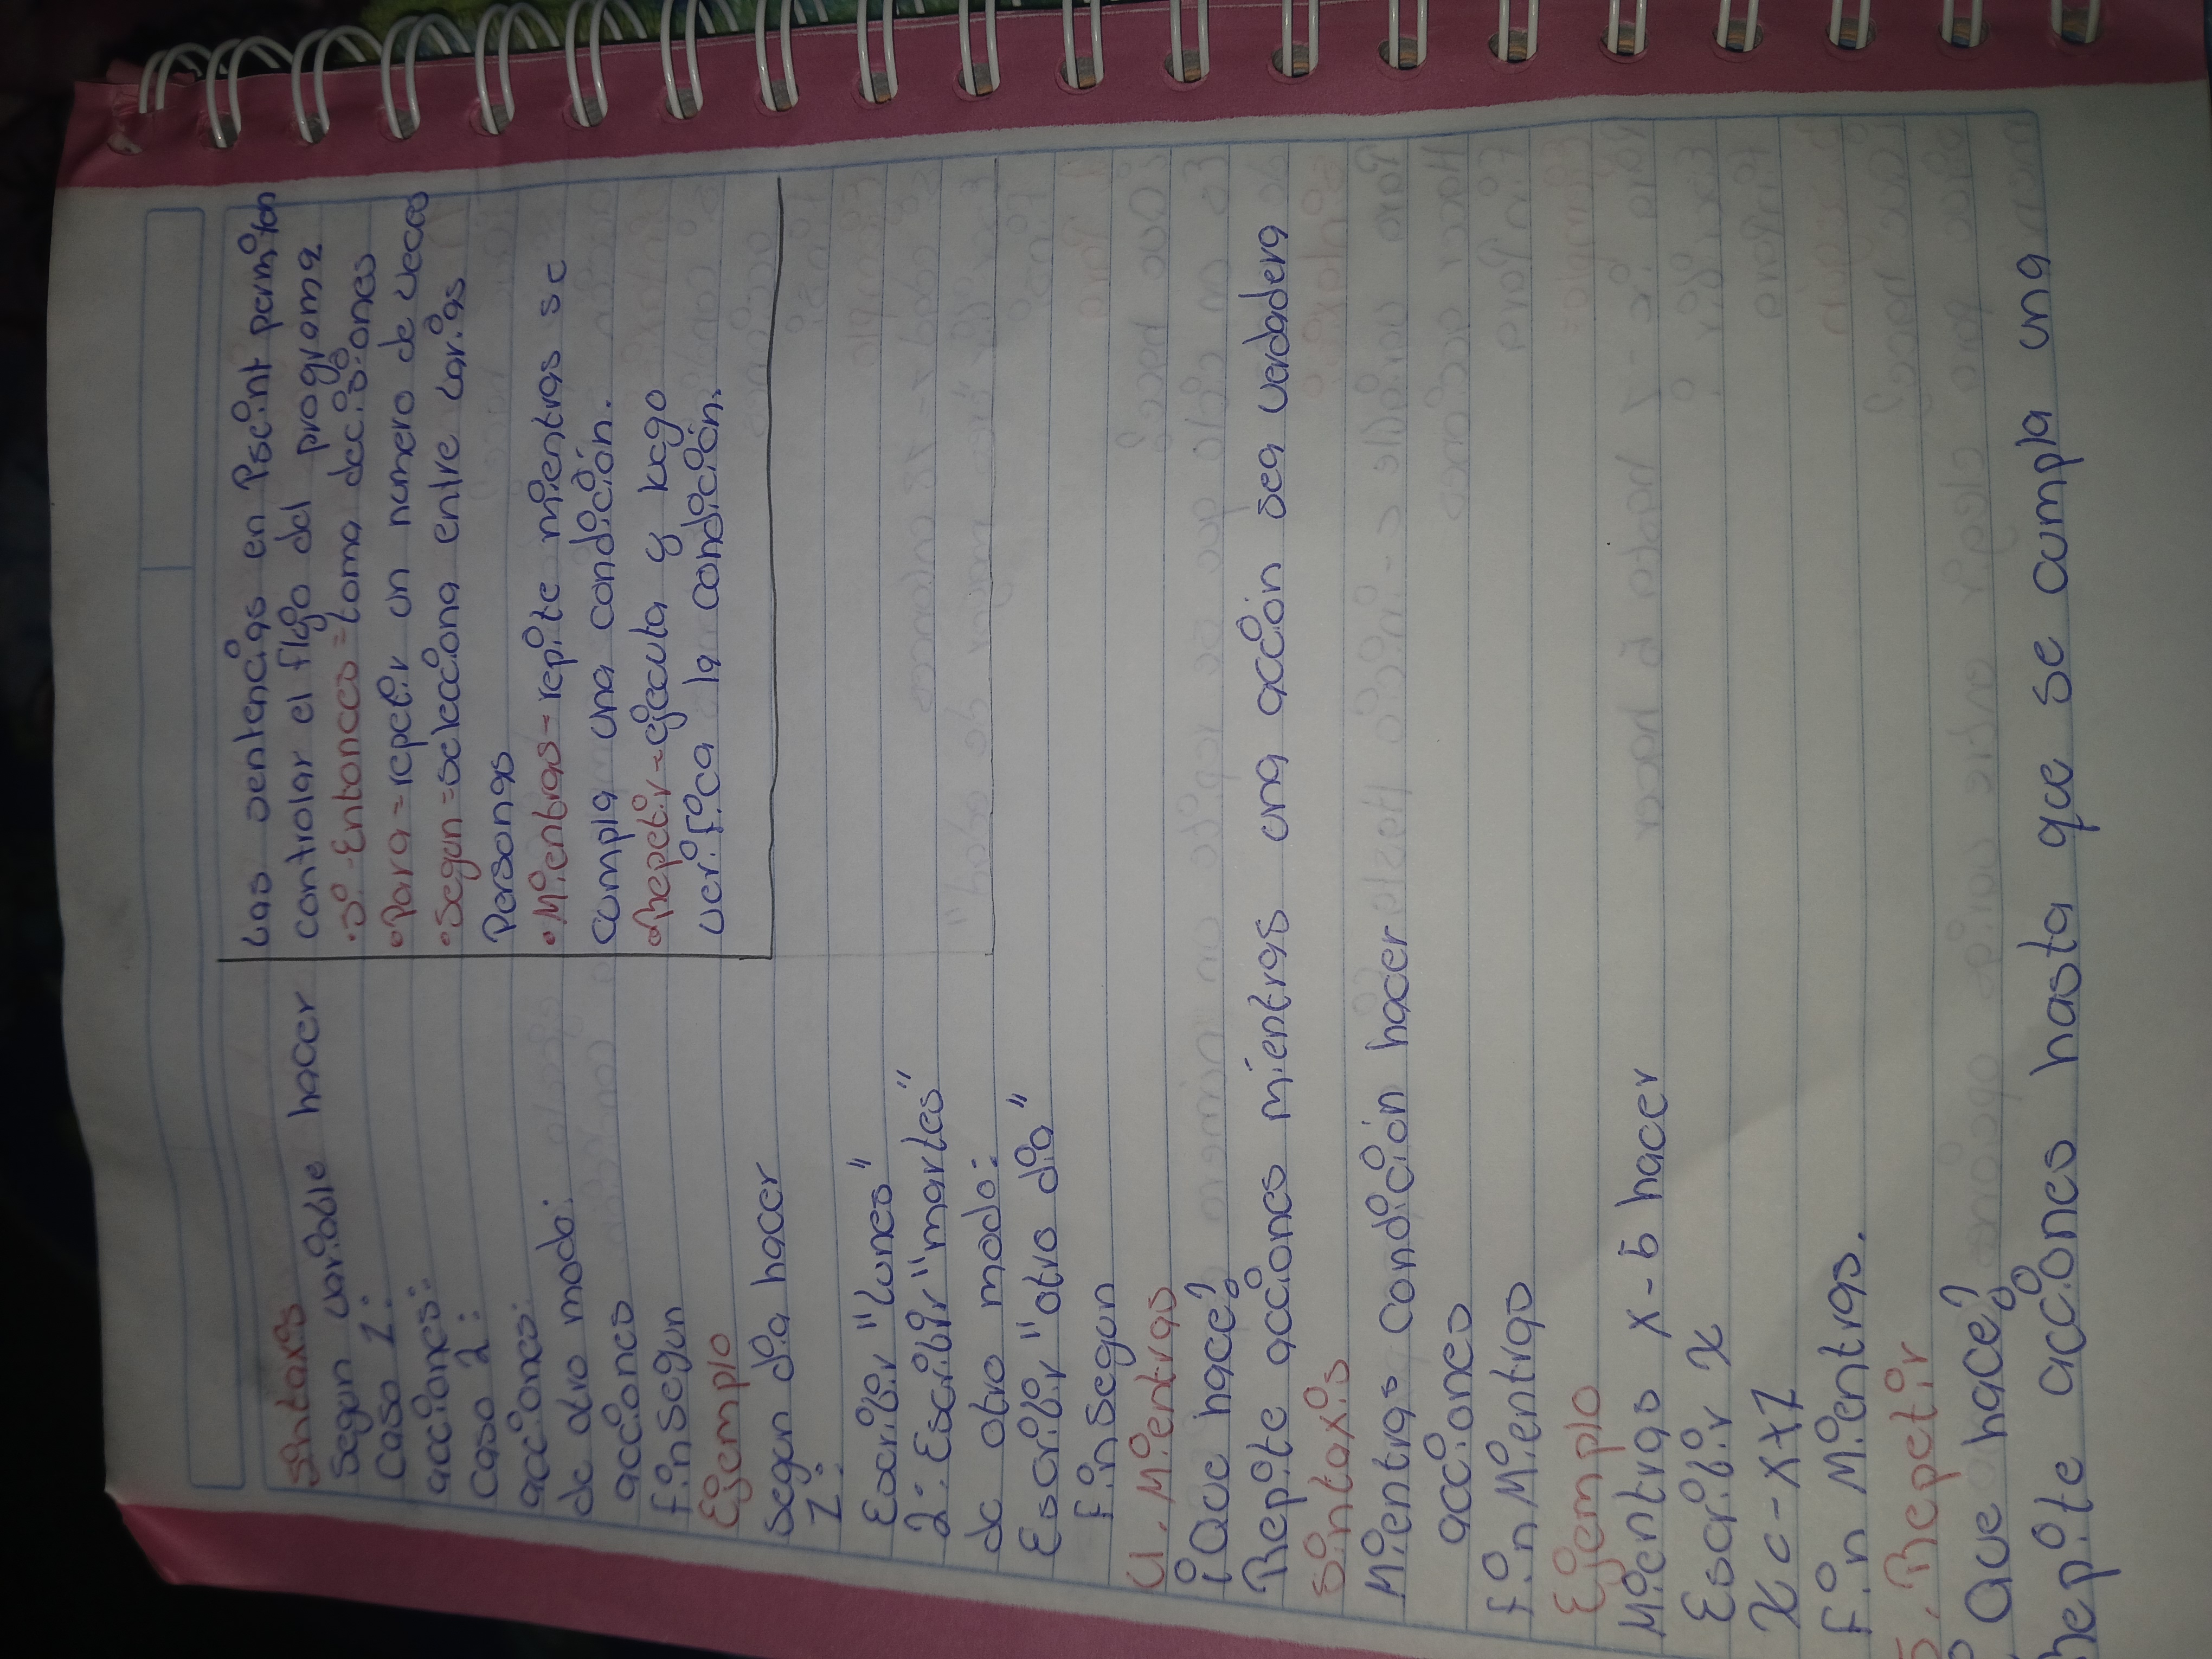 Sintaxis
Segun variable hacer
Caso 1:
acciones:
Caso 2:
acciones:
de otro modo:
acciones
finsegun
Ejemplo
Segun dia hacer
1:
Escribir "lunes"
2: Escribir "martes"
de otro modo:
Escribir "otro dia"
finsegun
Las sentencias en Pseint permiten
controlar el flujo del programa
• Si-Entonces = toma decisiones
• Para = repetir un numero de veces
• Segun = selecciona entre varias
Personas
• Mientras = repite mientras se
cumpla una condición.
• Repetir = ejecuta y luego
verifica la condición.
4. Mientras
¿Que hace?
Repite acciones mientras una acción sea verdadera
Sintaxis
Mientras condición hacer
acciones
fin Mientras
Ejemplo
Mientras x - 5 hacer
Escribir x
x c - x + 1
fin Mientras.
5. Repetir
¿Que hace?
Repite acciones hasta que se cumpla una